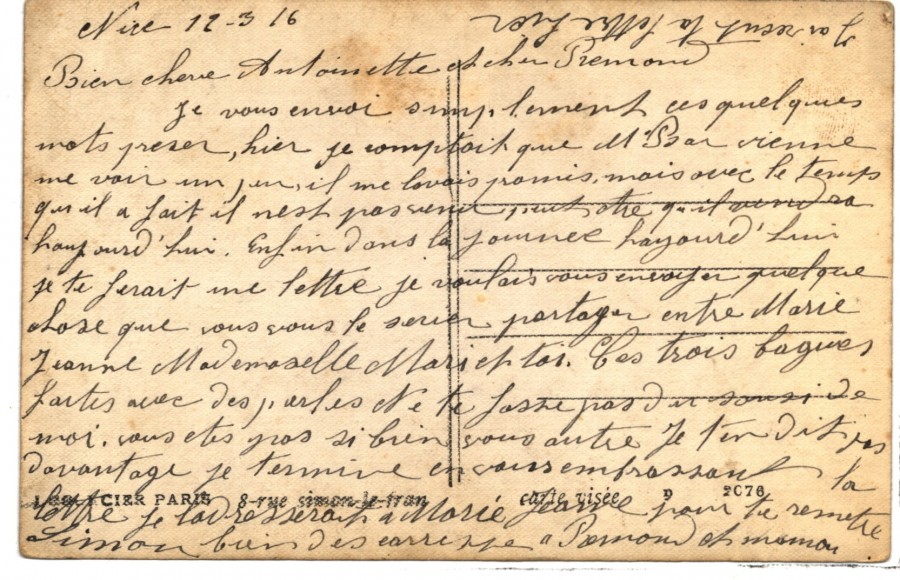 Nice 12-3 16
J'ai recut ta lettre hier
Bien chere Antoinette et cher Remond
Je vous envoi simplement ces quelques
mots preser, hier je comptait que Mr Bar vienne
me voir un peu, il me lavais promis, mais avec le temps
qu'il a fait il nest pas venu peut etre qu'il viendra
haujourd'hui. Enfin dans la journee haujourd'hui
je te ferait une lettre je voulais vous envoyer quelque
chose que vous vous le seriez partager entre Marie
Jeanne Mademoselle Marie et toi. Ces trois bagues
faites avec des perles Ne te fasse pas du sousi de
moi. vous etes pas si bien vous autre Je t'en dit pas
davantage je termine en vous embrassant la
CIER PARIS 8-rue simon-le-fran carte visée 9 2076
lettre je ladresserait a Marie Jeanne pour te remetre
Simon bien des carresse a Remond et moman